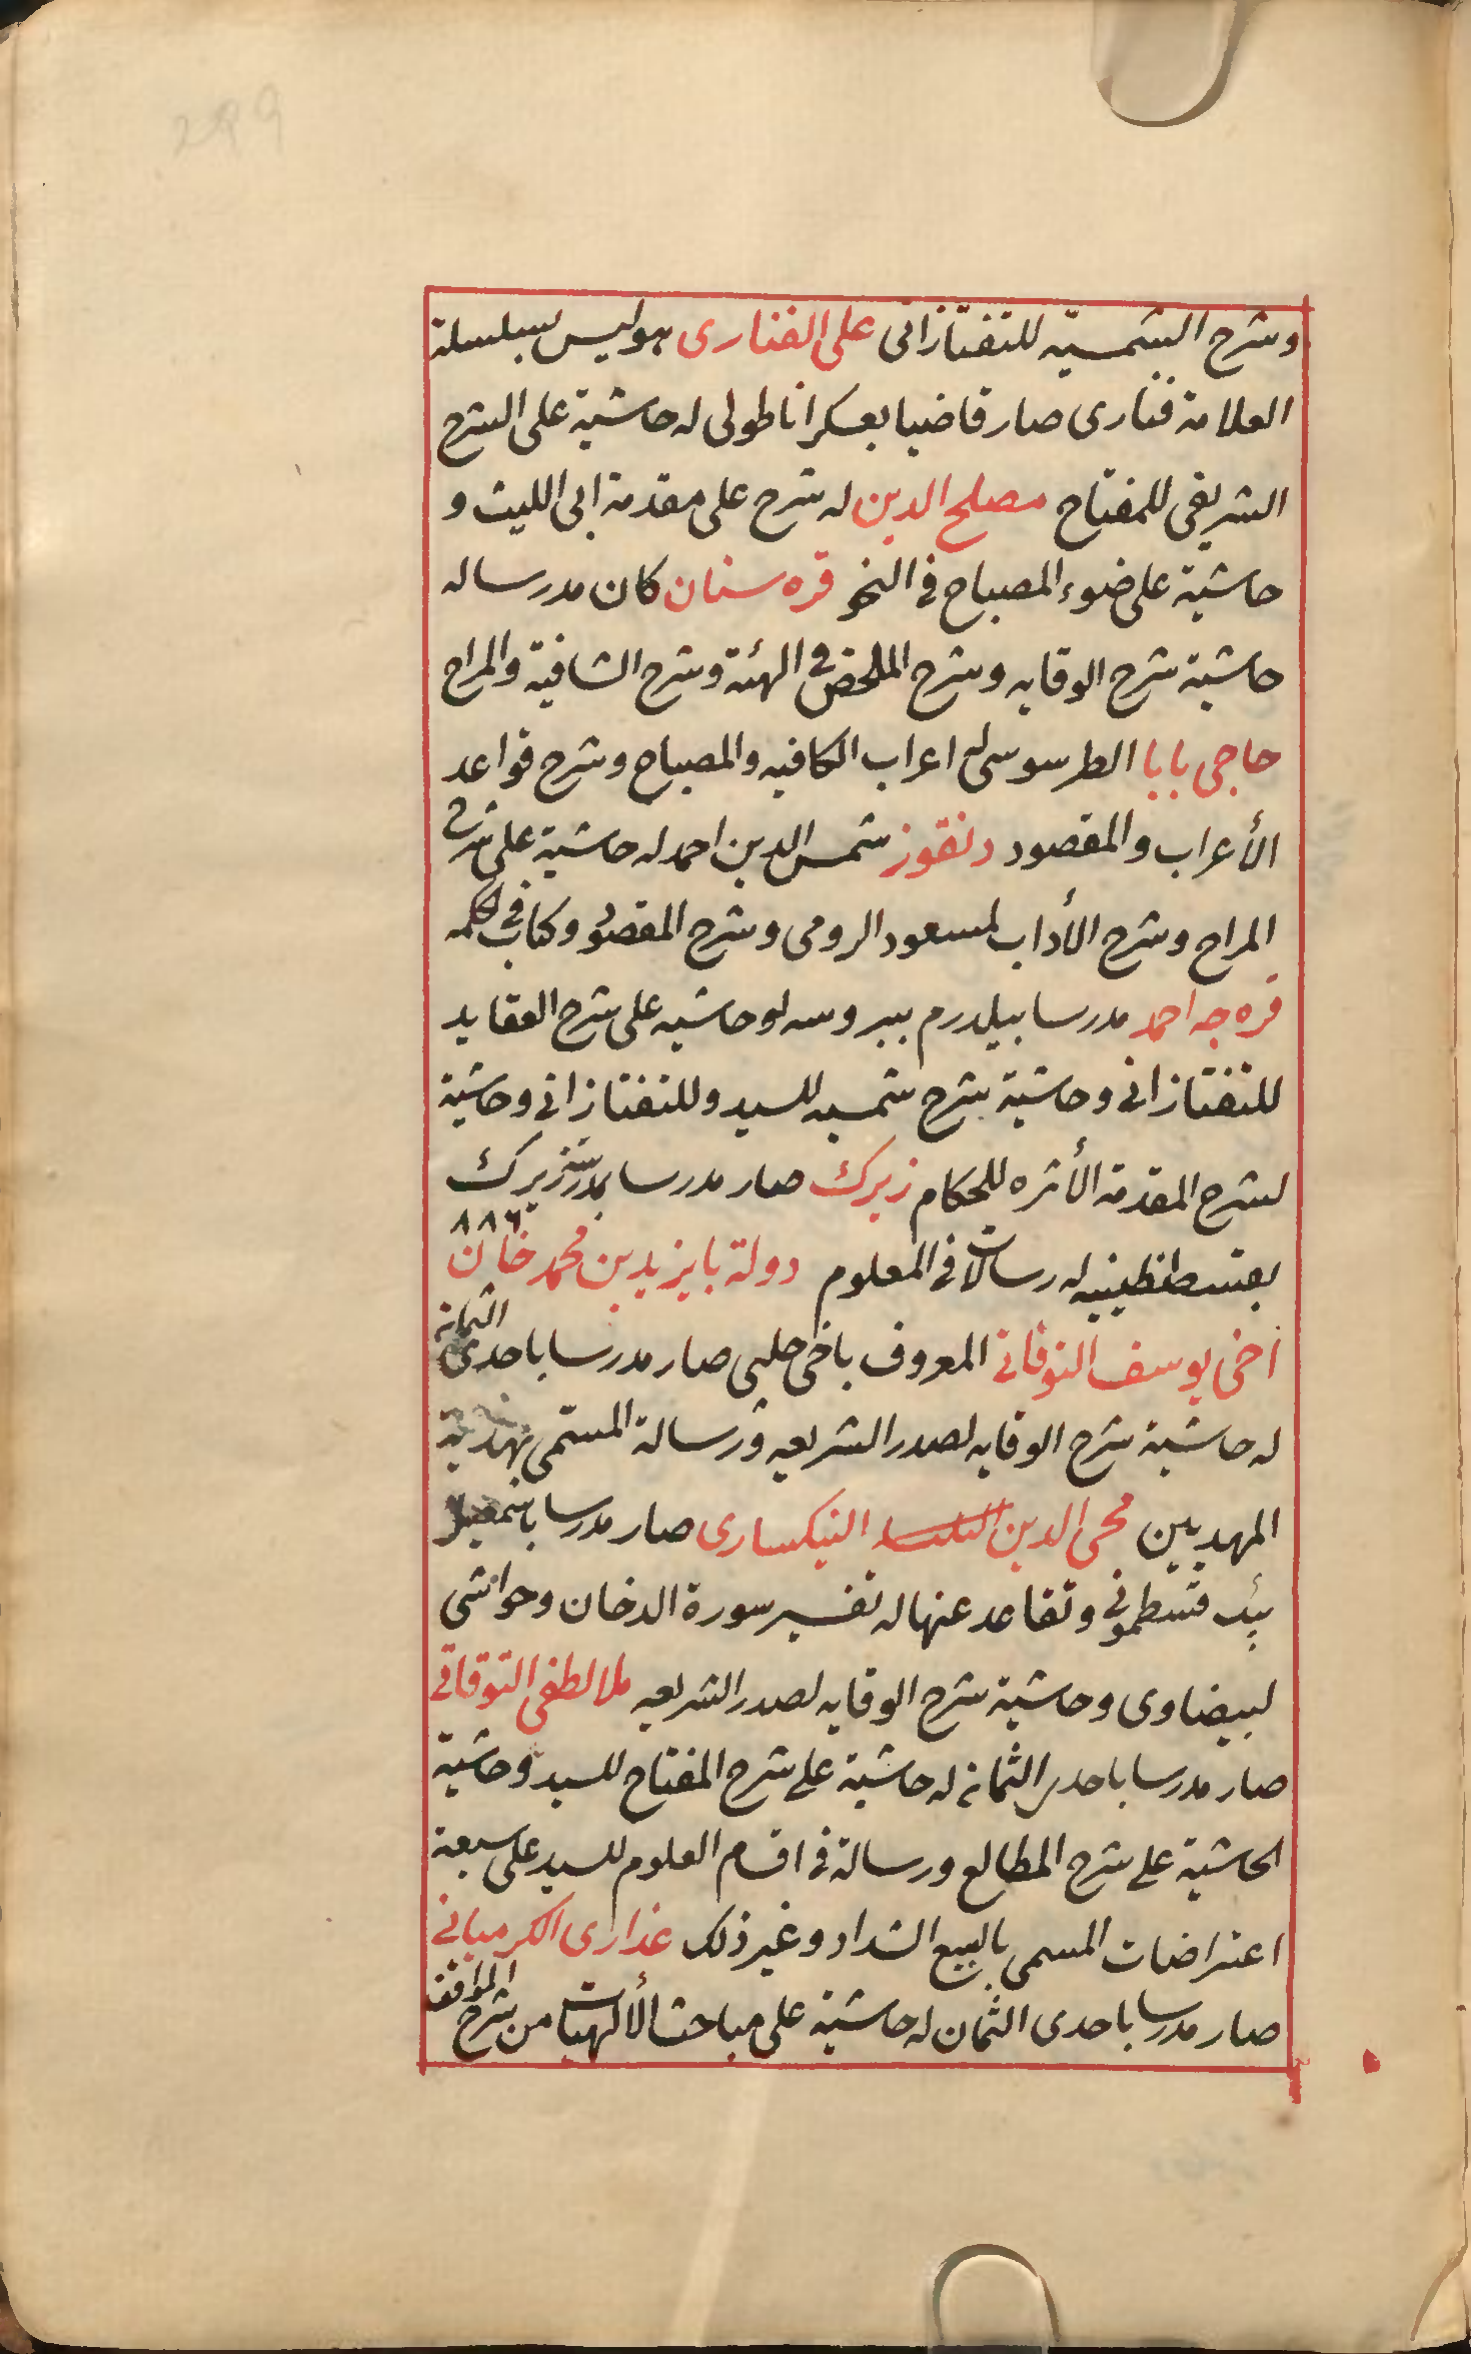 289
وشرح الشمسيّه للتفتازانى على الفنارى هو ليس بسلسلة
العلامة فنارى صار قاضيا بعسكر اناطولى له حاشية على الشرح
الشريفى للمفتاح مصلح الدين له شرح على مقدمة ابى الليث و
حاشية على ضوء المصباح فى النحو قره سنان كان مدرسا له
حاشية شرح الوقايه وشرح الملخص فى الهئة وشرح الشافية والمراح
حاجى بابا الطرسوسى له اعراب الكافيه والمصباح وشرح قواعد
الأعراب والمقصود دنقوز شمس الدين احمد له حاشية على شرح
المراح وشرح الأداب لمسعود الرومى وشرح المقصود وكتاب فى الحكمه
قره جه احمد مدرسا بيلدرم ببروسه له وحاشيه على شرح العقايد
للتفتازانى وحاشية شرح شمسيه للسيد وللتفتازانى وحاشية
لشرح المقدمة الأثره للحكام زيرك صار مدرسا بمدرسة زيرك
بقسطنطينيه له رسالات فى المعلوم دولة بايزيد بن محمد خان ٨٨٦
اخى يوسف التوقاتى المعروف باخى چلبى صار مدرسا باحدى الثمانية
له حاشية شرح الوقايه لصدر الشريعه ورسالة المسمّى بهدية
المهديين محى الدين النيكسارى صار مدرسا باسمعيل
بيك قسطمونى وتقاعد عنها له تفسير سورة الدخان وحواشى
لبيضاوى وحاشية شرح الوقايه لصدر الشريعه ملا لطفى التوقاتى
صار مدرسا باحدى الثمانية له حاشية على شرح المفتاح للسيد وحاشية
لحاشية على شرح المطالع ورسالة فى اقسام العلوم للسيد على سبعة
اعتراضات المسمى بالسبع الشداد وغير ذلك عذارى الكرميانى
صار مدرسا باحدى الثمان له حاشية على مباحث الألهيات من شرح المواقف